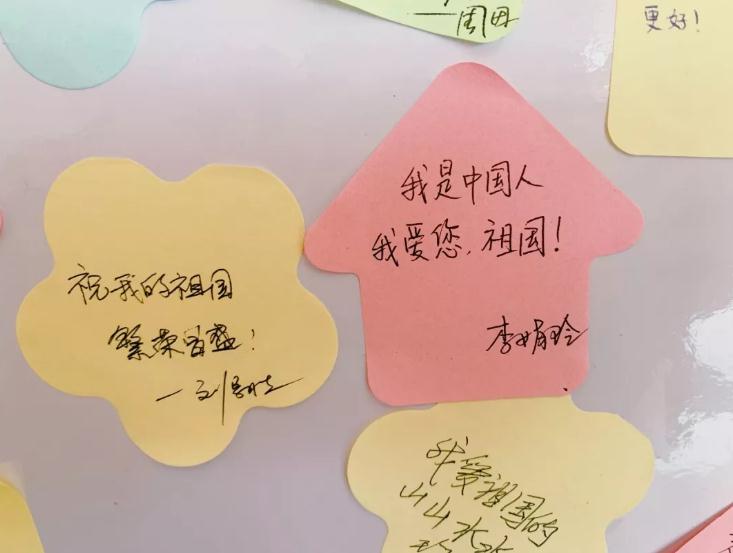 ——周田
更好!
我是中国人
我爱您,祖国!
李娟玲
祝我的祖国
繁荣昌盛!
我爱祖国的
山山水水